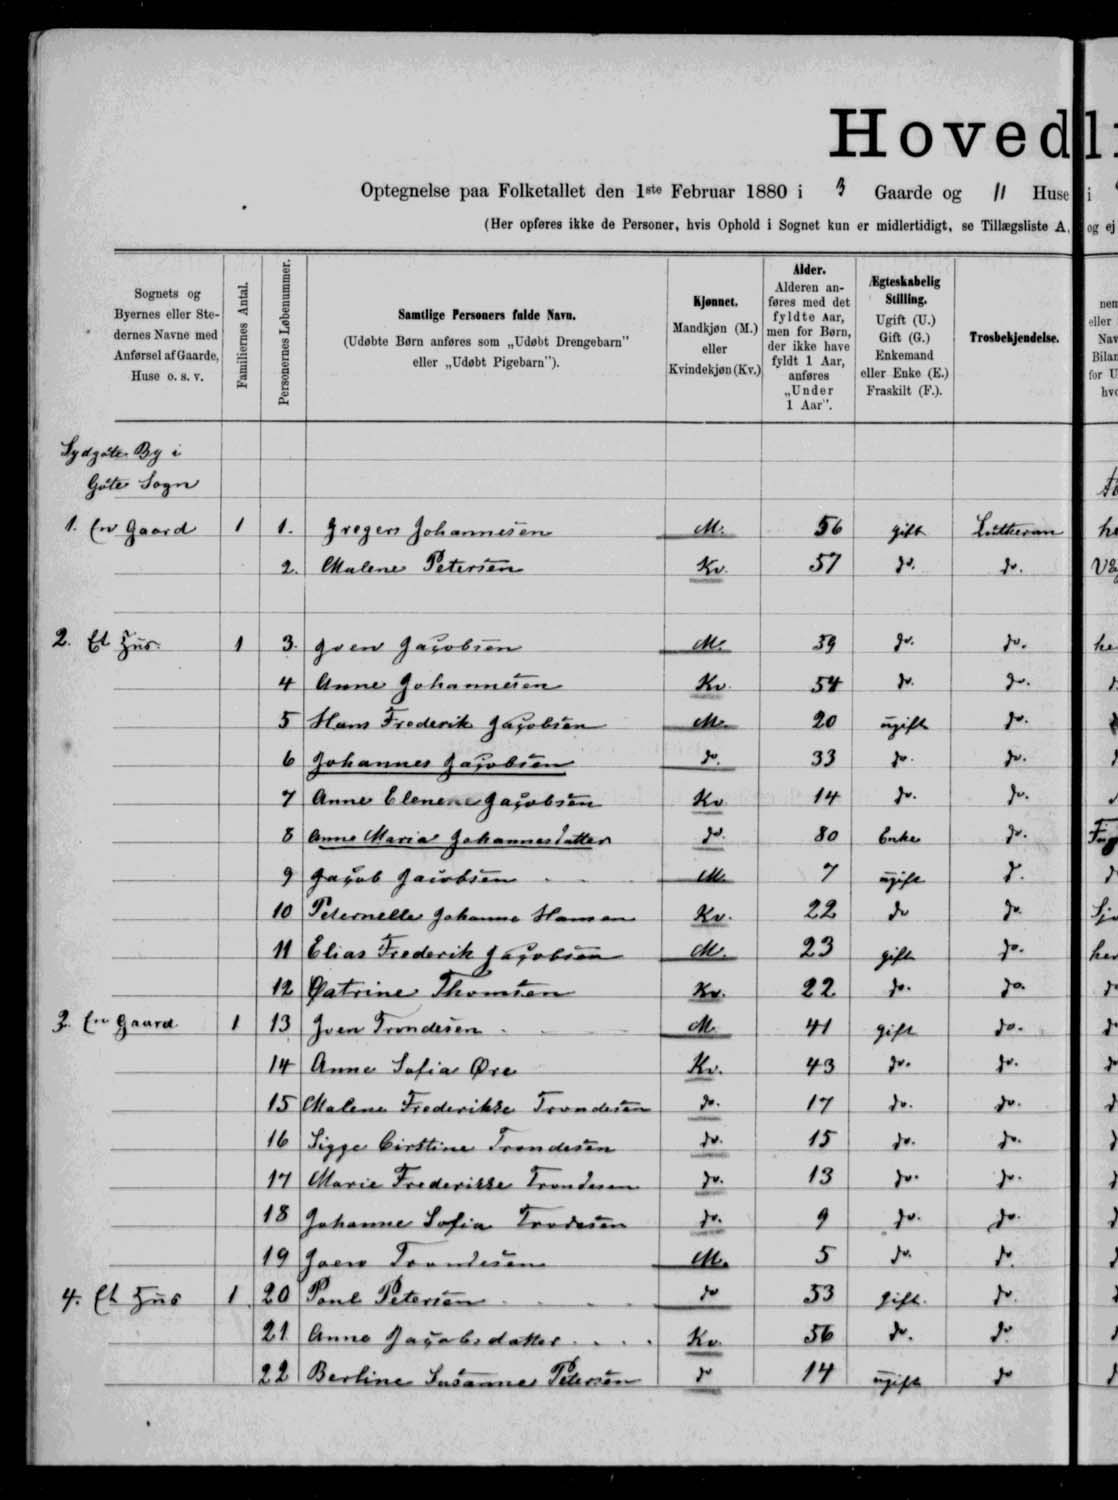 Hovedli
Optegnelse paa Folketallet den 1ste Februar 1880 i 3 Gaarde og 11 Huse i
(Her opføres ikke de Personer, hvis Ophold i Sognet kun er midlertidigt, se Tillægsliste A, og ej
Sognets og Byernes eller Ste-
dernes Navne med
Anførsel af Gaarde,
Huse o. s. v.
Familiernes Antal.
Personernes Løbenummer.
Samtlige Personers fulde Navn.
(Udøbte Børn anføres som „Udøbt Drengebarn"
eller „Udøbt Pigebarn").
Kjønnet.
Mandkjøn (M.)
eller
Kvindekjøn (Kv.)
Alder.
Alderen an-
føres med det
fyldte Aar,
men for Børn,
der ikke have
fyldt 1 Aar,
anføres
„Under
1 Aar".
Ægteskabelig
Stilling.
Ugift (U.)
Gift (G.)
Enkemand
eller Enke (E.)
Fraskilt (F.).
Trosbekjendelse.
Sydgøte By i
Gøte Sogn
1. En Gaard 1 1. Gregers Johannesen M. 56 gift Lutheran
2. Malene Petersen Kv. 57 do. do.
2. Et Hus. 1 3. Joen Jacobsen M. 59 do. do.
4 Anne Johannesen Kv. 54 do. do.
5 Hans Frederik Jacobsen M. 20 ugift do.
6 Johannes Jacobsen do. 33 do. do.
7 Anne Elenene Jacobsen Kv. 14 do. do.
8 Anne Maria Johannesdatter do. 80 Enke do.
9 Jacob Jacobsen M. 7 ugift d.
10 Peternelle Johanne Hansen Kv. 22 do do.
11 Elias Frederik Jacobsen M. 23 gift do.
12 Catrine Thomsen Kv. 22 do. do.
3. En Gaard 1 13 Joen Trondesen M. 41 gift do.
14 Anne Sofia Øre Kv. 43 do. do.
15 Malene Frederikke Trondesen do. 17 do. do.
16 Sigge Cirstine Trondesen do. 15 do. do.
17 Marie Frederikke Trondesen do. 13 do. do.
18 Johanne Sofia Trodesen do. 9 do. do.
19 Joen Trondesen M. 5 do. do
4. Et Hus 1. 20 Poul Petersen do 53 gift. do.
21 Anne Jacobsdatter Kv. 56 do. do
22 Berline Susanne Petersen do 14 ugift do